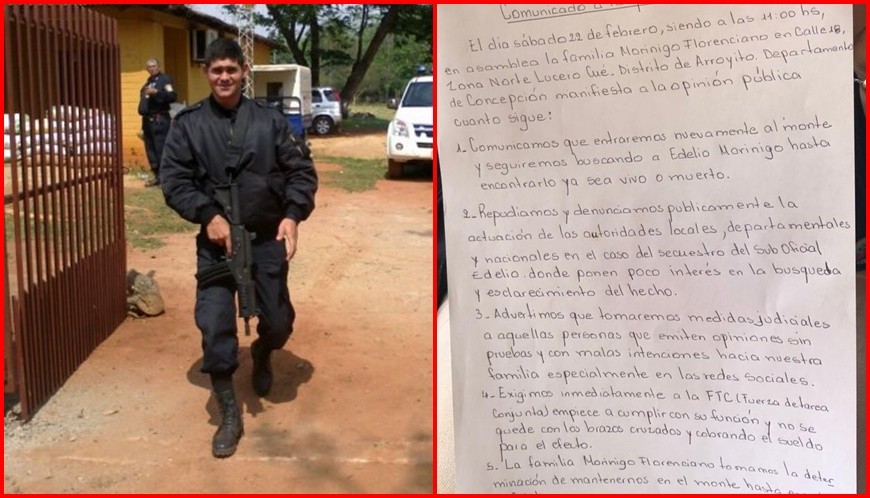 Comunicado a
El día sábado 22 de febrero, siendo a las 11:00 hs,
en asamblea la familia Morinigo Florenciano en Calle 18,
Zona Norte Lucero Cué. Distrito de Arroyito. Departamento
de Concepción manifiesta a la opinión pública
cuanto sigue:
1. Comunicamos que entraremos nuevamente al monte
y seguiremos buscando a Edelio Morinigo hasta
encontrarlo ya sea vivo o muerto.
2. Repudiamos y denunciamos publicamente la
actuación de las autoridades locales, departamentales
y nacionales en el caso del secuestro del Sub Oficial
Edelio. donde ponen poco interés en la busqueda
y esclarecimiento del hecho.
3. Advertimos que tomaremos medidas judiciales
a aquellas personas que emiten opiniones sin
pruebas y con malas intenciones hacia nuestra
familia especialmente en las redes sociales.
4. Exigimos inmediatamente a la FTC (Fuerza de tarea
Conjunta) empiece a cumplir con su función y no se
quede con los brazos cruzados y cobrando el sueldo
para el efecto.
5. La familia Morinigo Florenciano tomamos la deter
minación de mantenernos en el monte hasta